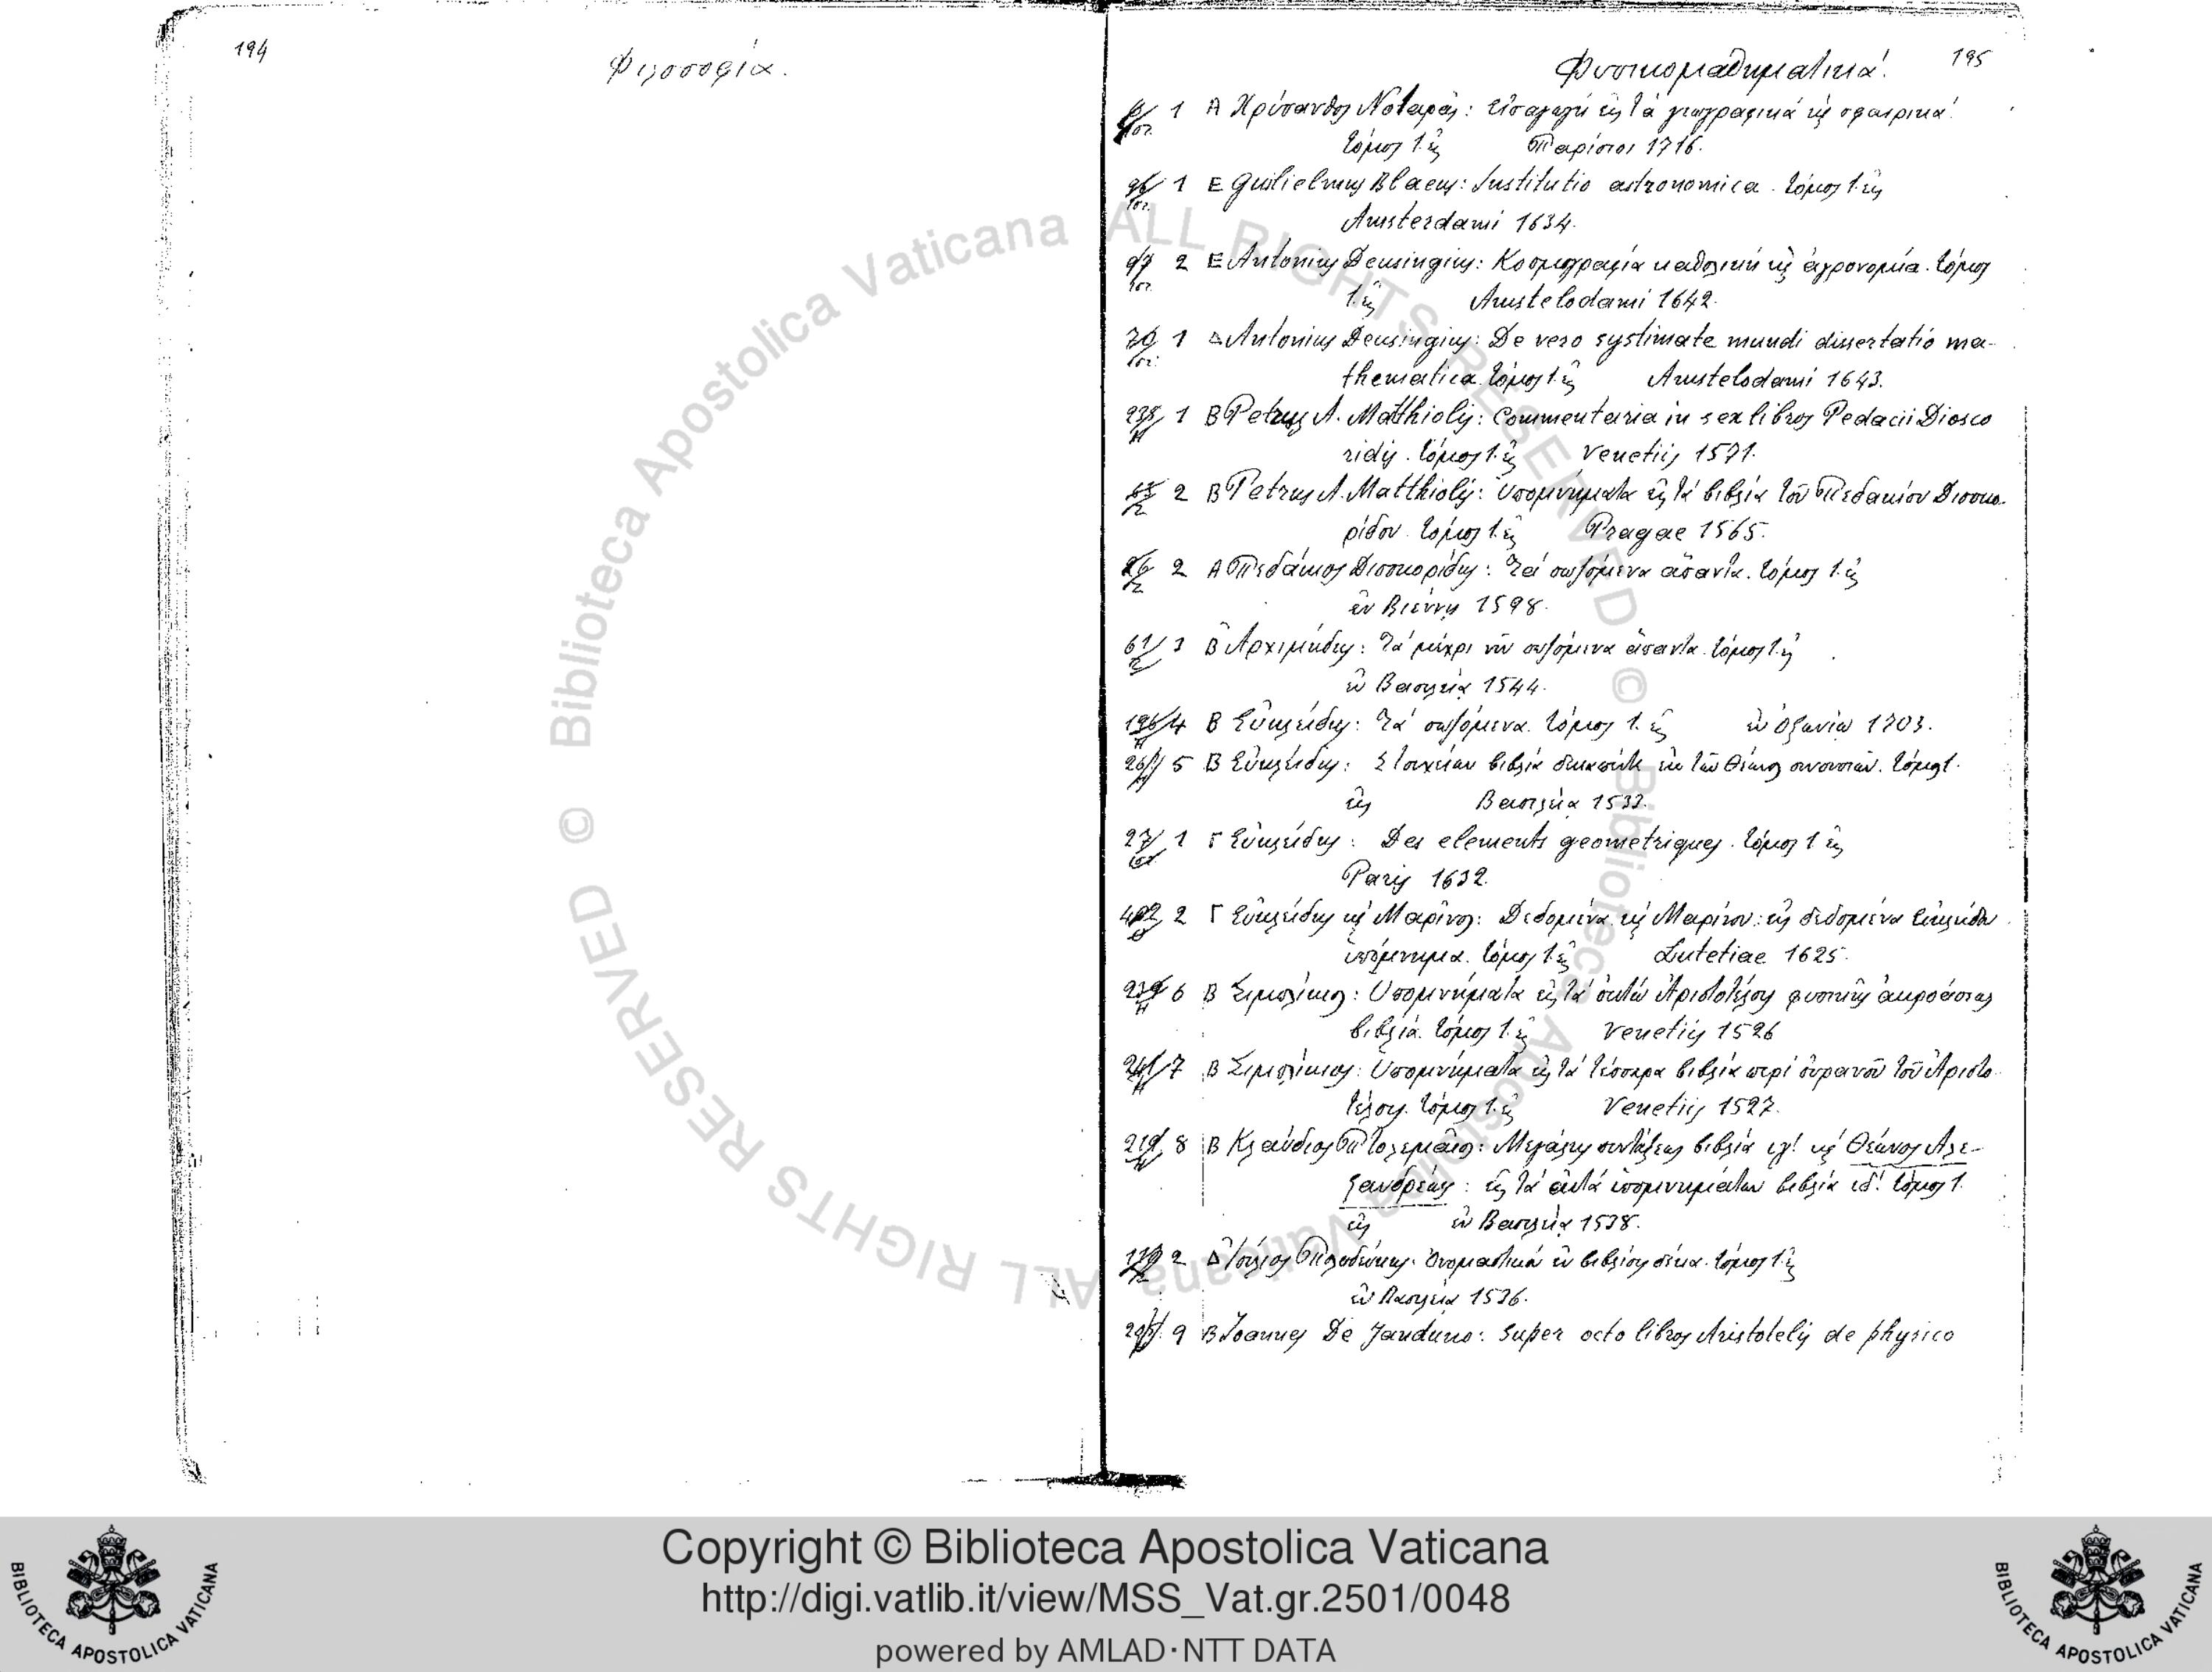 194
Φιλοσοφία.
195
Φυσικομαθηματικά.
1 Α Χρύσανθος Νοταρᾶς: Εἰσαγωγὴ εἰς τὰ γεωγραφικὰ κὶ σφαιρικά.
τόμος 1. εἰς Παρίσιοι 1716.
96/ 1 Ε Guilielmus Blaeus: Institutio astronomica. τόμος 1. εἰς
Amsterdami 1634.
97 2 Ε Antonius Deusingius: Κοσμογραφία καθολικὴ κὶ ἀστρονομία. τόμος
1. εἰς Amstelodami 1642.
70 1 Δ Antonius Deusingius: De vero systimate mundi dissertatio ma-
thematica. τόμος 1. εἰς Amstelodami 1643.
238/ 1 Β Petrus A. Matthiolis: Commentaria in sex libros Pedacii Diosco
ridis. τόμος 1. εἰς Venetiis 1571.
2 Β Petrus A. Matthiolis: Ὑπομνήματα εἰς τὰ βιβλία τοῦ Πεδακίου Διοσκο-
ρίδου. τόμος 1. εἰς Pragae 1565.
2 Α Πεδάκιος Διοσκορίδης: Τὰ σωζόμενα ἅπαντα. τόμος 1. εἰς
ἐν Βιέννῃ 1598.
61/ 3 Β Ἀρχιμήδης: Τὰ μέχρι νῦν σωζόμενα ἅπαντα. τόμος 1. εἰς
ἐν Βασιλείᾳ 1544.
196/ 4 Β Εὐκλείδης: Τὰ σωζόμενα. τόμος 1. εἰς ἐν Ὀξωνίῳ 1703.
5 Β Εὐκλείδης: Στοιχείων βιβλία δεκαπέντε ἐκ τῶν Θέωνος συνουσιῶν. τόμος 1.
εἰς Βασιλείᾳ 1533.
27/ 1 Γ Εὐκλείδης: Des elements geometriques. τόμος 1 εἰς
Paris 1632.
402 2 Γ Εὐκλείδης κὶ Μαρῖνος: Δεδομένα κὶ Μαρίνου: εἰς δεδομένα Εὐκλείδου
ὑπόμνημα. τόμος 1. εἰς Lutetiae 1625.
239 6 Β Σιμπλίκιος: Ὑπομνήματα εἰς τὰ ὀκτὼ Ἀριστοτέλους φυσικῆς ἀκροάσεως
βιβλία. τόμος 1. εἰς Venetiis 1526
241/ 7 Β Σιμπλίκιος: Ὑπομνήματα εἰς τὰ τέσσαρα βιβλία περὶ οὐρανοῦ τοῦ Ἀριστο
τέλους. τόμος 1. εἰς Venetiis 1527.
219 8 Β Κλαύδιος Πτολεμαῖος: Μεγάλης συντάξεως βιβλία ιγ΄. κὶ Θέωνος Ἀλε-
ξανδρέως: εἰς τὰ αὐτὰ ὑπομνημάτων βιβλία ια΄. τόμος 1.
εἰς ἐν Βασιλείᾳ 1538.
2 Δ Ἰούλιος Πολυδεύκης: Ὀνομαστικὸν ἐν βιβλίοις δέκα. τόμος 1. εἰς
ἐν Βασιλείᾳ 1536.
9 Β Ioannes De Janduno: super octo libros Aristotelis de physico
ALL RIGHTS RESERVED © Biblioteca Apostolica Vaticana
ALL RIGHTS RESERVED © Biblioteca Apostolica Vaticana
Copyright © Biblioteca Apostolica Vaticana
http://digi.vatlib.it/view/MSS_Vat.gr.2501/0048
powered by AMLAD·NTT DATA
BIBLIOTECA APOSTOLICA VATICANA
BIBLIOTECA APOSTOLICA VATICANA